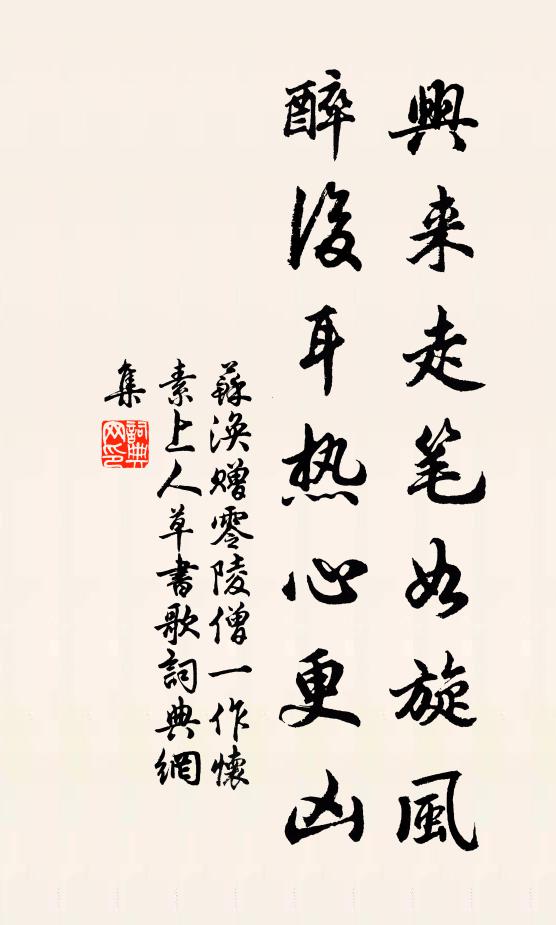 興来走笔如旋風
醉後耳热心更凶
蘇渙贈零陵僧一作懷
素上人草書歌詞典網
集
詞典网印